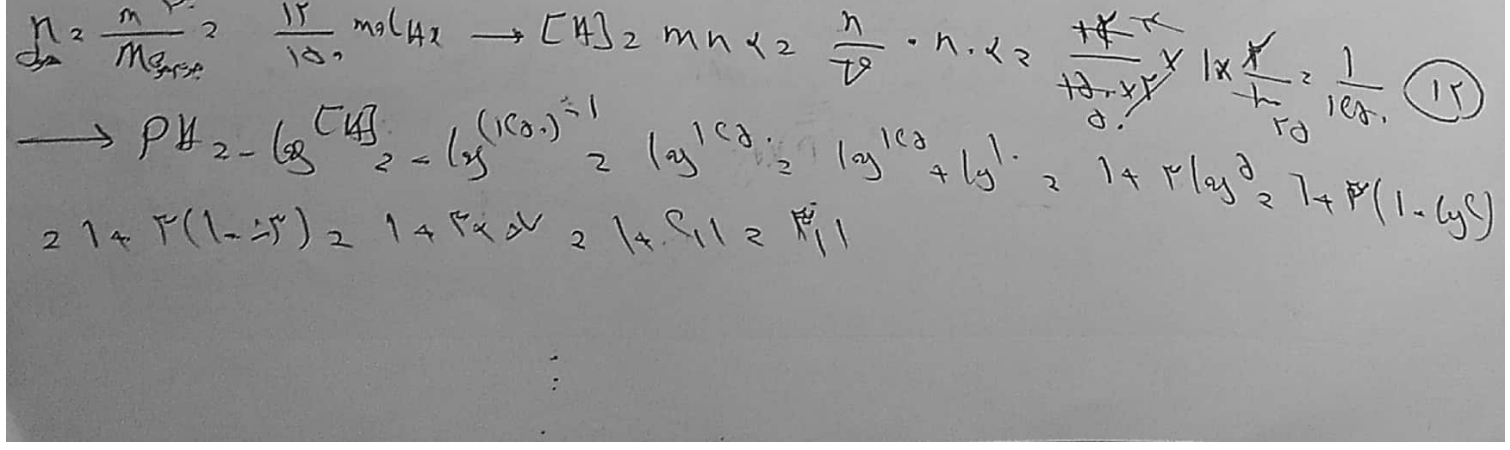 n = m / M = ۱۲ / ۱۵۰ mol HX → [H] = mnα = n / V · n · α = ۱۲ / (۱۵۰ × ۲) × ۱ × ۲ / ۱۰۰ = ۱ / ۱۲۵۰ (۱۲)
→ PH = - log [H] = - log (۱۲۵۰)^-۱ = log ۱۲۵۰ = log ۱۲۵ + log ۱۰ = ۱ + ۳ log ۵ = ۱ + ۳(۱ - log ۲)
= ۱ + ۳(۱ - ۰٫۳) = ۱ + ۳ × ۰٫۷ = ۱ + ۲٫۱ = ۳٫۱